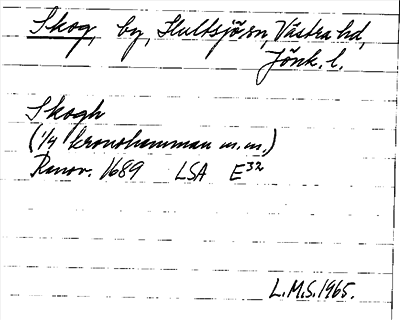 Skog, by, Hultsjö sn, Västra hd,
Jönk. l.
Skogh
(1/4 kronohemman m.m.)
Renov. 1689 LSA E32
L.M.S. 1965.